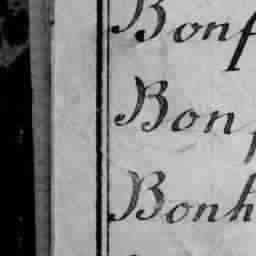 Bonf
Bon
Bonh